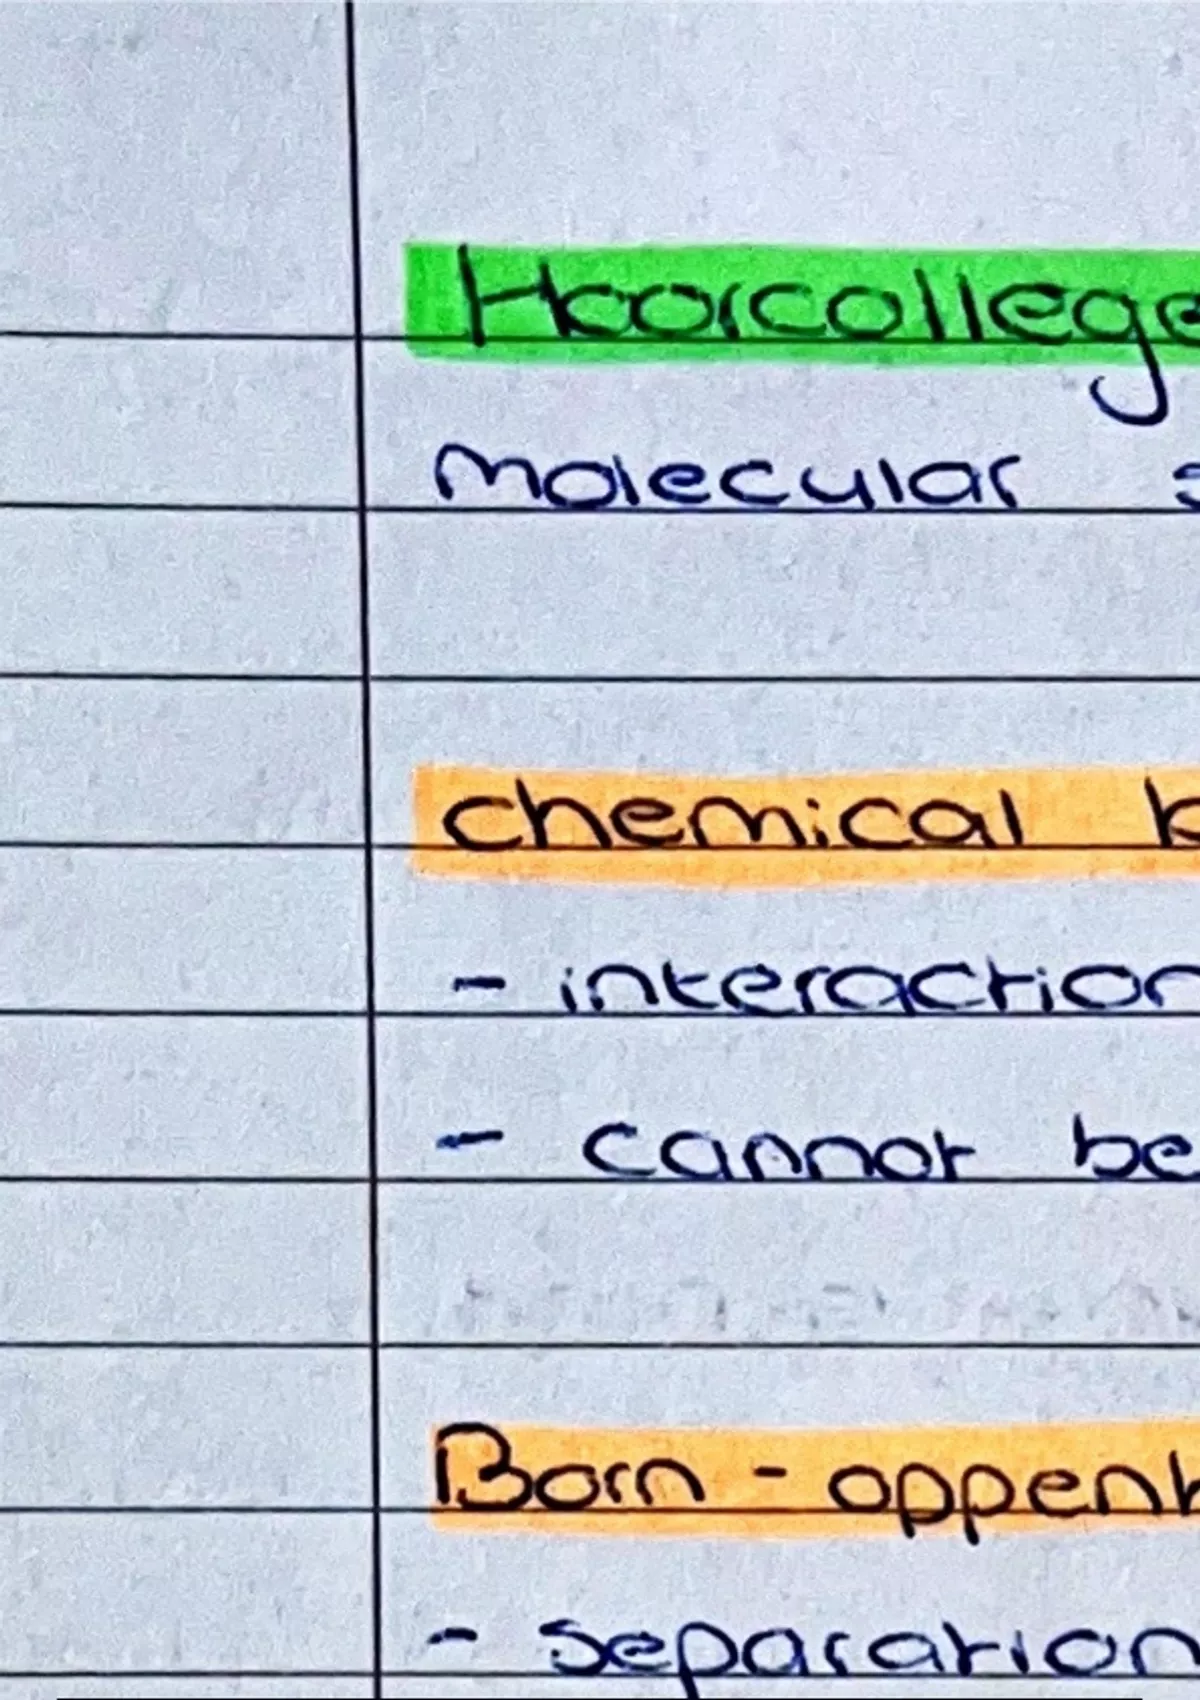 Hoorcollege
molecular
chemical
- interaction
- cannot be
Born - oppenh
- separation